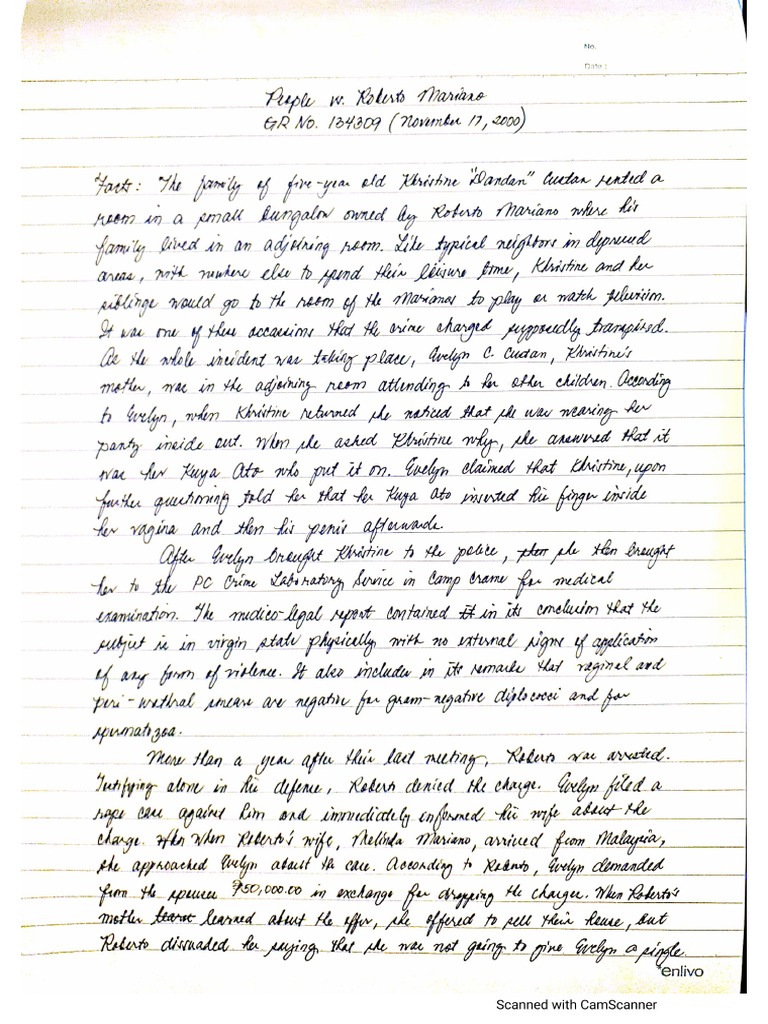 No.
Date:
People vs. Roberto Mariano
GR No. 134309 (November 17, 2000)
Facts: The family of five-year old Khristine "Dandan" Custan rented a
room in a small bungalow owned by Roberto Mariano where his
family lived in an adjoining room. Like typical neighbors in depressed
areas, with nowhere else to spend their leisure time, Khristine and her
siblings would go to the room of the Marianos to play or watch television.
It was one of these occassions that the crime charged supposedly transpired.
As the whole incident was taking place, Evelyn C. Custan, Khristine's
mother, was in the adjoining room attending to her other children. According
to Evelyn, when Khristine returned she noticed that she was wearing her
panty inside out. When she asked Khristine why, she answered that it
was her Kuya Ato who put it on. Evelyn claimed that Khristine, upon
further questioning told her that her Kuya Ato inserted his finger inside
her vagina and then his penis afterwards.
After Evelyn brought Khristine to the police, she then brought
her to the PC Crime Laboratory Service in Camp Crame for medical
examination. The medico-legal report contained in its conclusion that the
subject is in virgin state physically with no external signs of application
of any form of violence. It also includes in its remarks that vaginal and
peri-urethral smears are negative for gram-negative diplococci and for
spermatozoa.
More than a year after their last meeting, Roberto was arrested.
Testifying alone in his defense, Roberto denied the charge. Evelyn filed a
rape case against him and immediately informed his wife about the
charge. When Roberto's wife, Melinda Mariano, arrived from Malaysia,
she approached Evelyn about the case. According to Roberto, Evelyn demanded
from the spouses ₱50,000.00 in exchange for dropping the charges. When Roberto's
mother learned about the offer, she offered to sell their house, but
Roberto dissuaded her saying that she was not going to give Evelyn a single
enlivo
Scanned with CamScanner